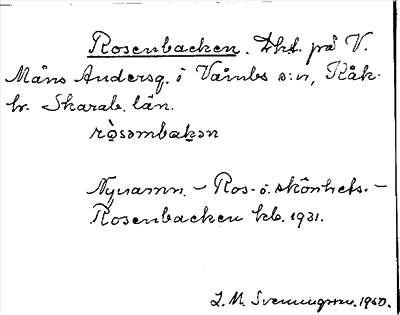 Rosenbacken. Dkt. på V.
Måns Andersg. i Våmbs s:n, Kåk-
br. Skarab. län.
ròsəmbakən
Nynamn. – Ros- o. skönhets. –
Rosenbacken kb. 1931.
L. M. Svenungsson. 1960.